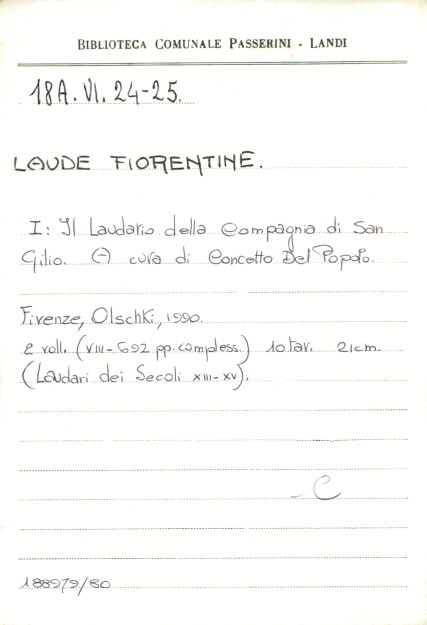 BIBLIOTECA COMUNALE PASSERINI - LANDI
18A.VI.24-25.
LAUDE FIORENTINE.
I: Il Laudario della Compagnia di San
Gilio. A cura di Concetto Del Popolo.
Firenze, Olschki, 1990.
2 voll. (VIII-692 pp. compless.) 10 tav. 21cm.
(Laudari dei Secoli XIII-XV).
- C
188979/80